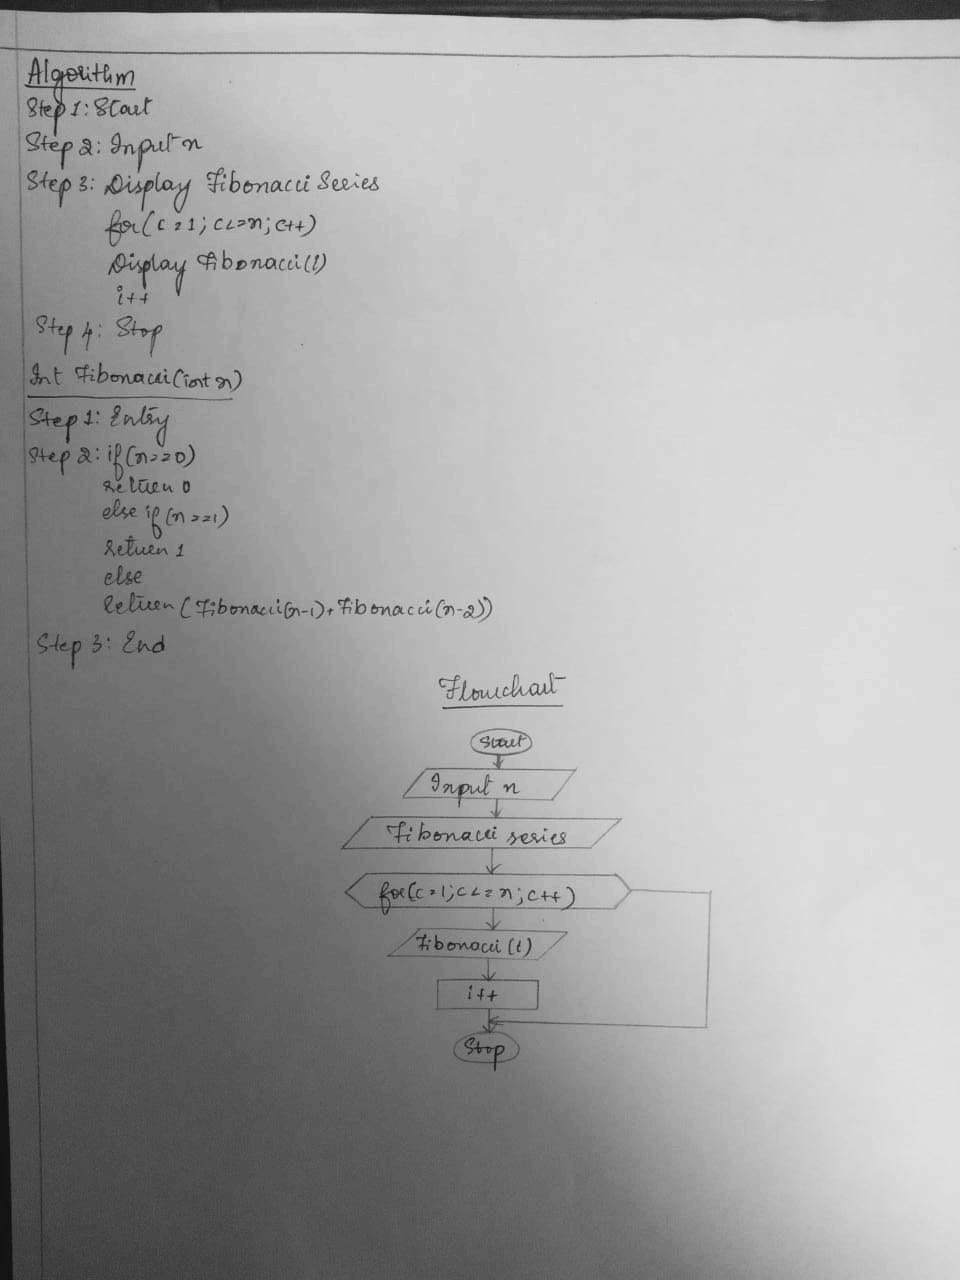 Algorithm
Step 1: Start
Step 2: Input n
Step 3: Display Fibonacci Series
for(c=1; c<=n; c++)
Display Fibonacci(i)
i++
Step 4: Stop
Int Fibonacci(int n)
Step 1: Entry
Step 2: if(n==0)
Return 0
else if(n==1)
Return 1
else
Return(Fibonacci(n-1)+Fibonacci(n-2))
Step 3: End
Flowchart
Start
Input n
Fibonacci series
for(c=1;c<=n;c++)
Fibonacci(i)
i++
Stop